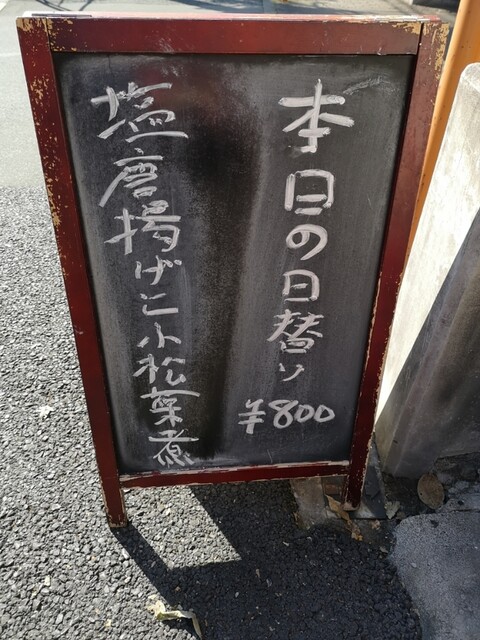 本日の日替り
¥800
塩唐揚げと小松菜煮